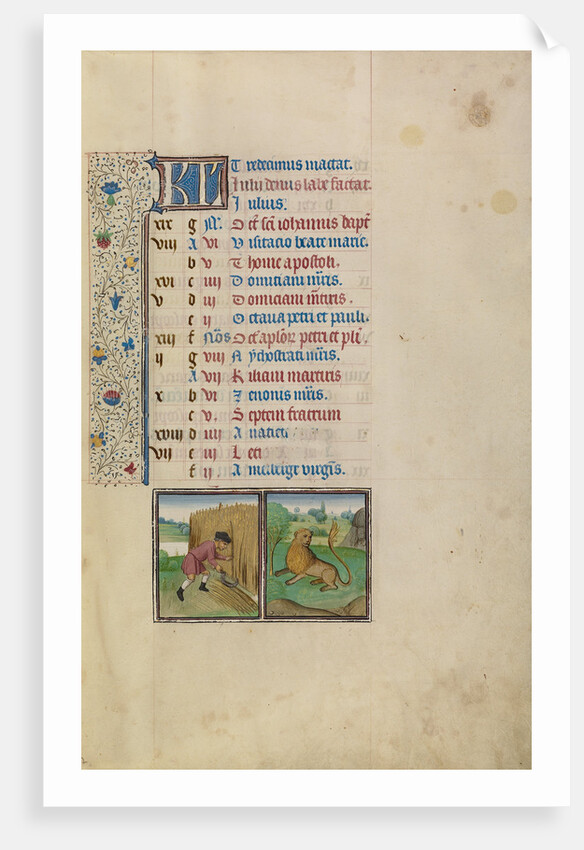 KL Tredecimus mactat.
Iulij denus labefactat.
Iulius.
xix g Sct sci iohannis bapt
viii A vi Visitacio beate marie.
b v Thome apostoli.
xvi c iiii Domiciani mris.
v d iii Domiciani mtiris.
e ii Octaua petri et pauli.
xiii f Nōs Oct aplōꝝ petri et pli.
ii g viii Nychostrati mris.
A vii Kiliani martiris
x b vi Zenonis mris.
c v Septem fratrum
xviii d iiii Anacleti
vii e iii Leti
f ii Amelberge virgis.